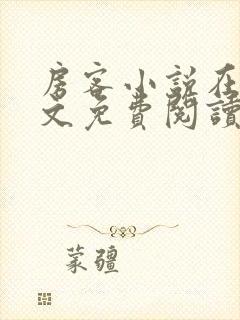 房客小説在
文免費閱讀
蒙疆